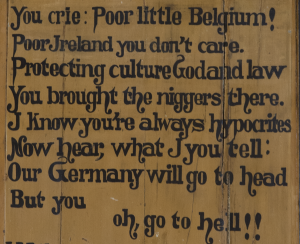 You crie: Poor little Belgium!
Poor Ireland you don't care.
Protecting culture God and law
You brought the niggers there.
I know you're always hypocrites
Now hear, what I you tell:
Our Germany will go to head
But you
oh, go to hell!!